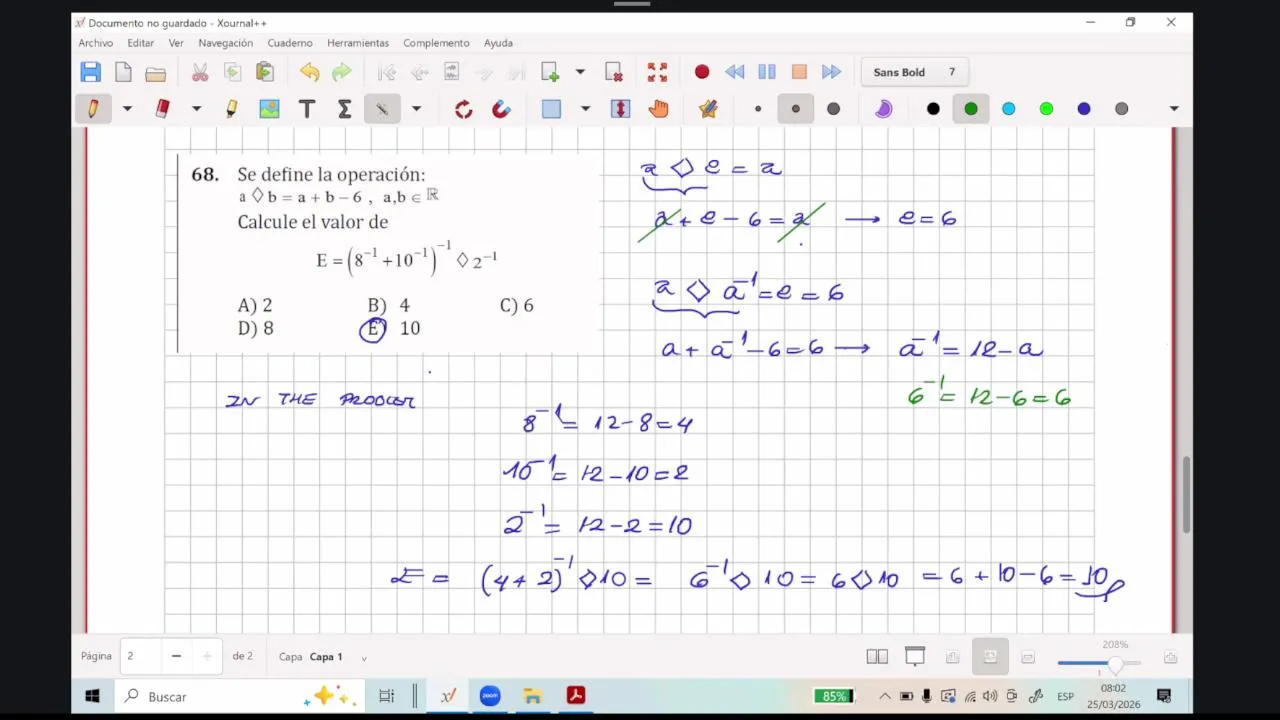 Documento no guardado - Xournal++
Archivo Editar Ver Navegación Cuaderno Herramientas Complemento Ayuda
Sans Bold 7
68. Se define la operación:
a ◊ b = a + b − 6 , a,b ∈ ℝ
Calcule el valor de
E = (8⁻¹ + 10⁻¹)⁻¹ ◊ 2⁻¹
A) 2 B) 4 C) 6
D) 8 E) 10
a ◊ e = a
a + e − 6 = a → e = 6
a ◊ a⁻¹ = e = 6
a + a⁻¹ − 6 = 6 → a⁻¹ = 12 − a
6⁻¹ = 12 − 6 = 6
IN THE
8⁻¹ = 12 − 8 = 4
10⁻¹ = 12 − 10 = 2
2⁻¹ = 12 − 2 = 10
E = (4 + 2)⁻¹ ◊ 10 = 6⁻¹ ◊ 10 = 6 ◊ 10 = 6 + 10 − 6 = 10
Página 2 de 2 Capa Capa 1
208%
1
Buscar
85%
ESP
08:02
25/03/2026
zoom